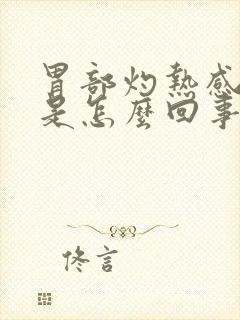 胃部灼热感
是怎麼回事
佟言